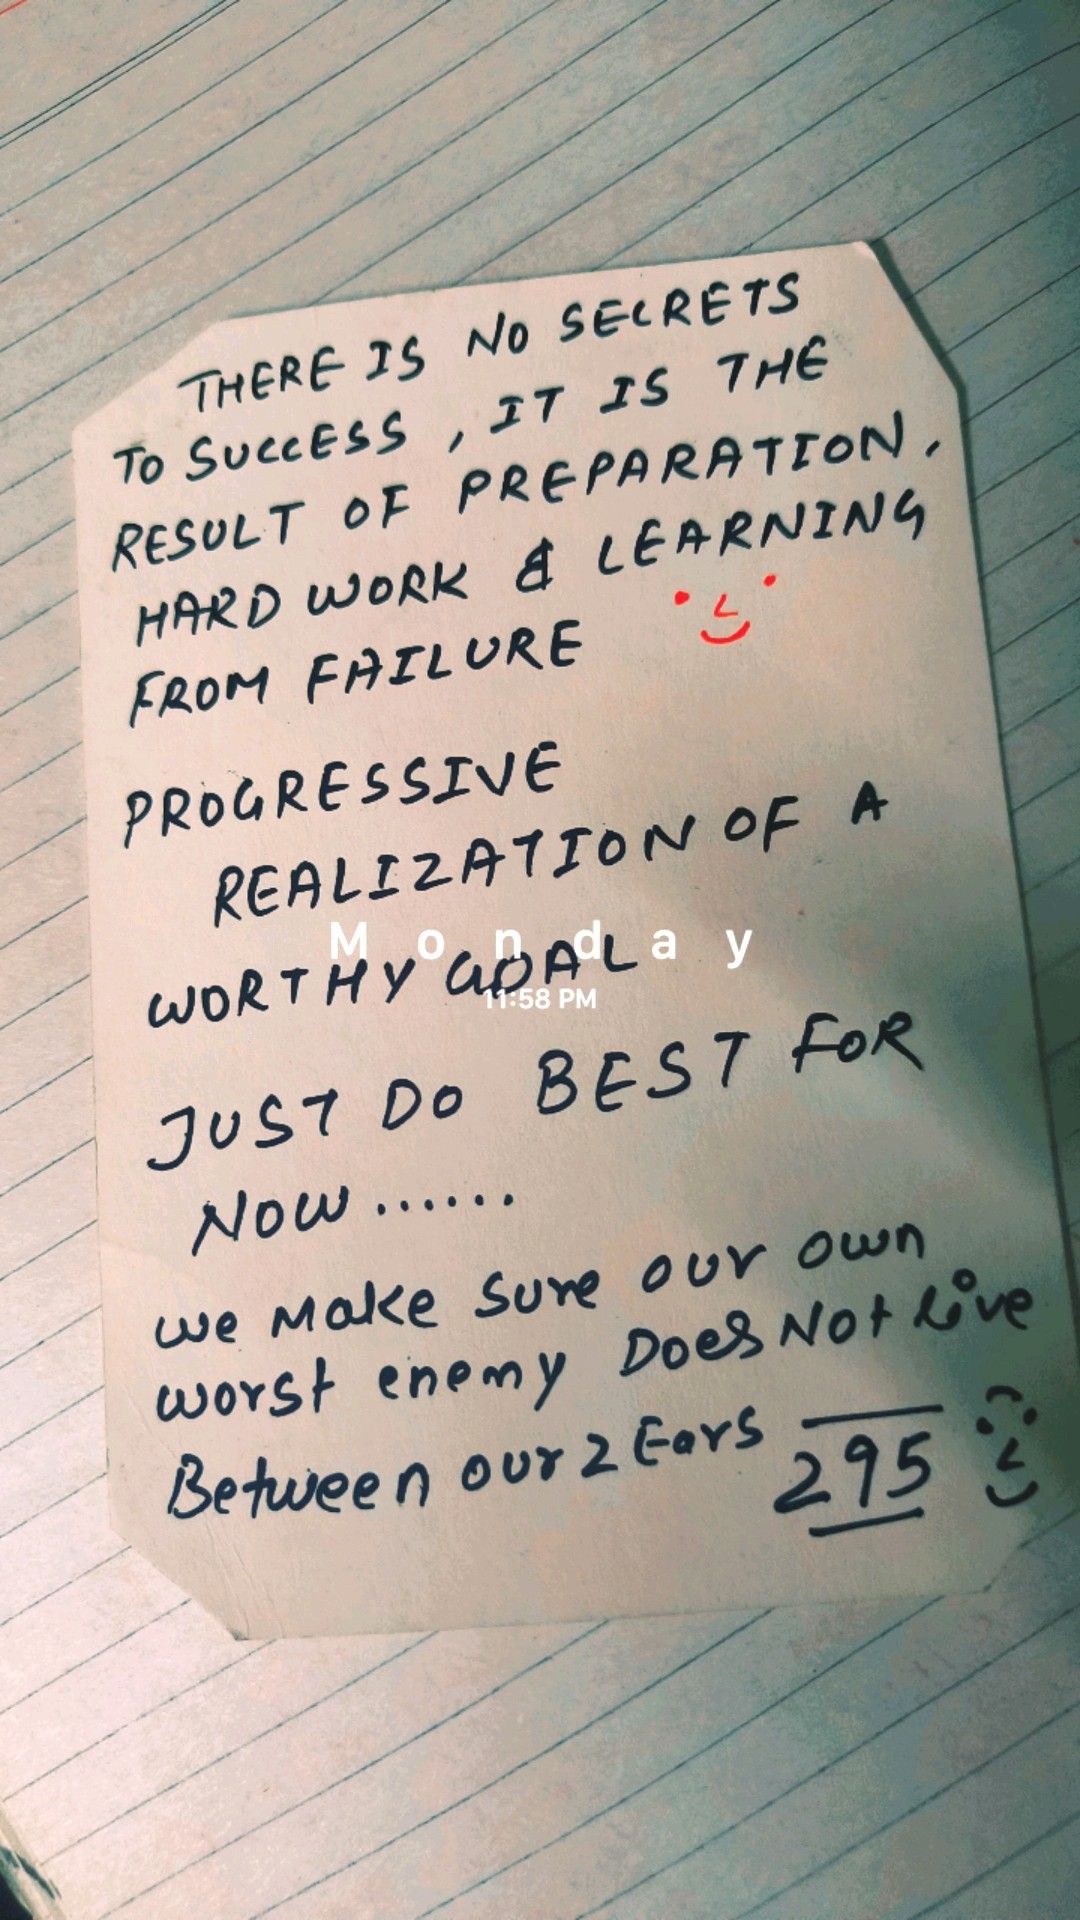 THERE IS NO SECRETS
TO SUCCESS, IT IS THE
RESULT OF PREPARATION,
HARD WORK & LEARNING
FROM FAILURE
PROGRESSIVE
REALIZATION OF A
Monday
WORTHY GOAL
11:58 PM
JUST DO BEST FOR
NOW......
we make sure our own
worst enemy Does Not live
Between our 2 Ears 295